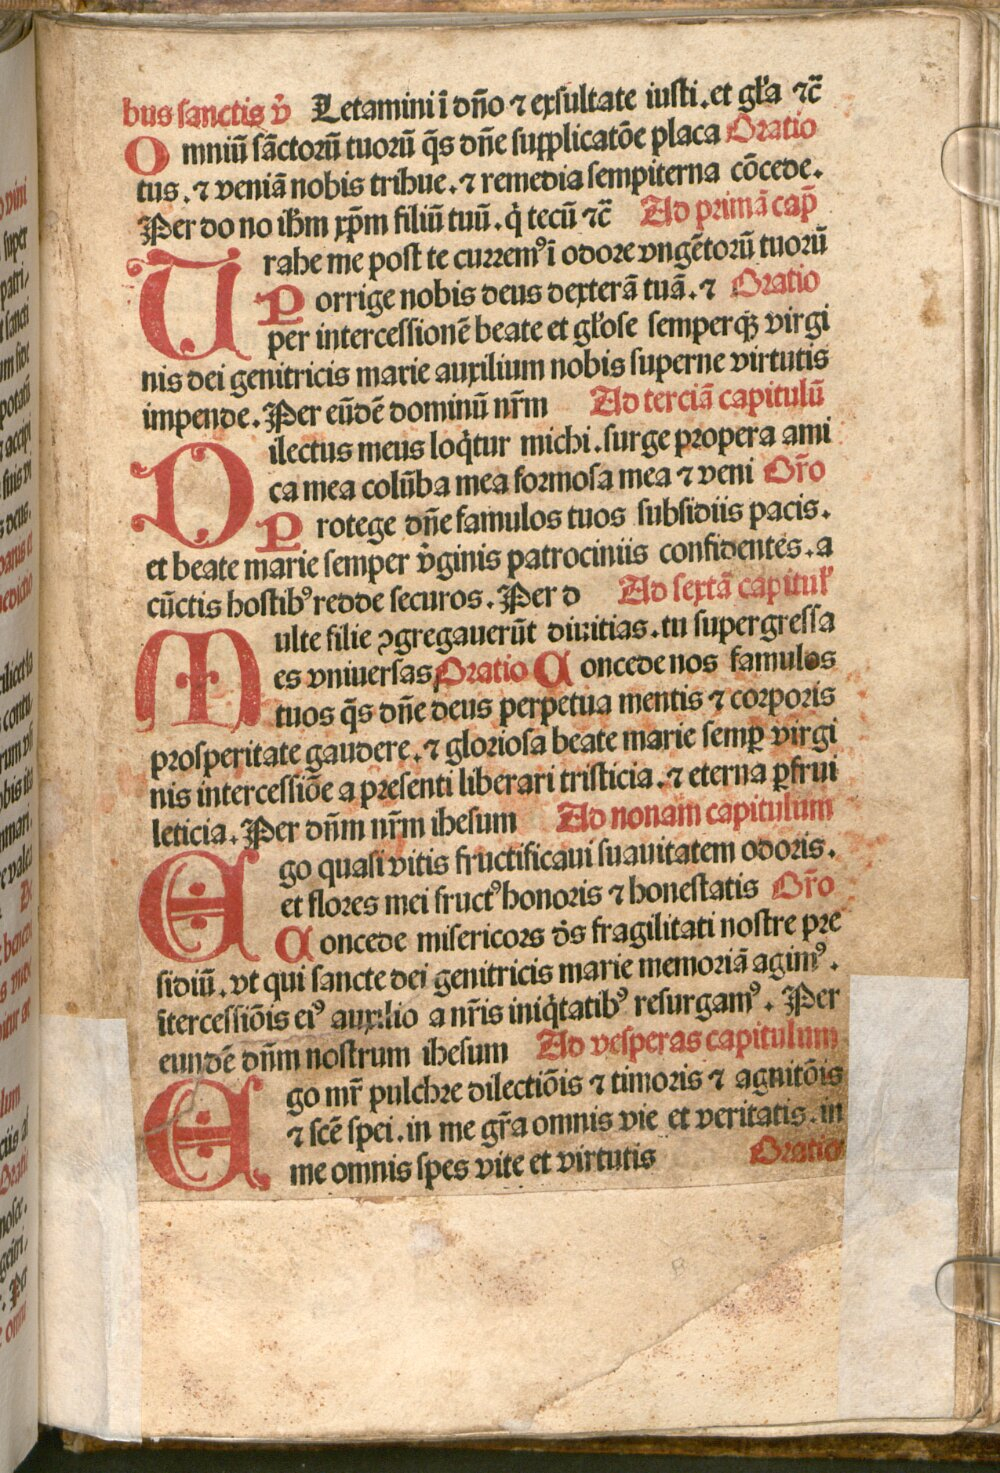 bus sanctis v̉ Letamini ī dn̄o ⁊ exsultate iusti. et gl'a ⁊c̄
Omniū sāctorū tuorū q̄s dn̄e supplicatōe placa Oratio
tus. ⁊ veniā nobis tribue. ⁊ remedia sempiterna cōcede.
Per do no ih̄m xp̄m filiū tuū. q̇ tecū ⁊c̄ Ad primā cap̄
Trahe me post te currem⁹ ī odore vngētorū tuorū
Porrige nobis deus dexterā tuā. ⁊ Oratio
per intercessionē beate et gl'ose semperqȝ virgi
nis dei genitricis marie auxilium nobis superne virtutis
impende. Per eūdē dominū nr̄m Ad terciā capitulū
Dilectus meus loq̇tur michi. surge propera ami
ca mea colūba mea formosa mea ⁊ veni Or̄o
Protege dn̄e famulos tuos subsidiis pacis.
et beate marie semper v̉ginis patrociniis confidentes. a
cūctis hostib⁹ redde securos. Per d Ad sextā capitul'
Multe filie ꝯgregauerūt diuitias. tu supergressa
es vniuersas Oratio Concede nos famulos
tuos q̄s dn̄e deus perpetua mentis ⁊ corporis
prosperitate gaudere. ⁊ gloriosa beate marie semꝑ virgi
nis intercessiōe a presenti liberari tristicia. ⁊ eterna ꝑfrui
leticia. Per dn̄m nr̄m ihesum Ad nonam capitulum
Ego quasi vitis fructificaui suauitatem odoris.
et flores mei fruct⁹ honoris ⁊ honestatis Or̄o
Concede misericors d̄s fragilitati nostre pre
sidiū. vt qui sancte dei genitricis marie memoriā agim⁹.
ītercessiōis ei⁹ auxilio a nr̄is iniq̇tatib⁹ resurgam⁹. Per
eundē dn̄m nostrum ihesum Ad vesperas capitulum
Ego mr̄ pulchre dilectiōis ⁊ timoris ⁊ agnitōis
⁊ scē spei. in me gr̄a omnis vie et veritatis. in
me omnis spes vite et virtutis Oratio